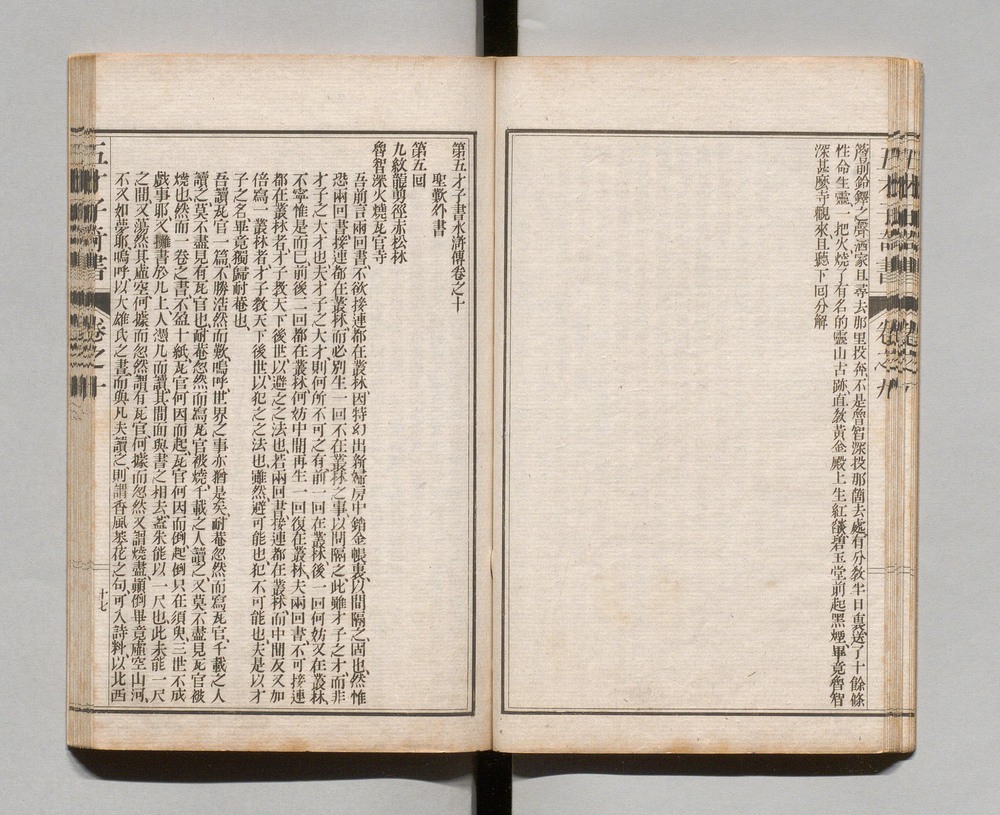 簷前鈴鐸之聲洒家且尋去那里投奔不是魯智深投那箇去處有分敎半日裏送了十餘條
性命生靈一把火燒了有名的靈山古跡直敎黃金殿上生紅燄碧玉堂前起黑煙畢竟魯智
深甚麼寺觀來且聽下回分解
卷之九
第五才子書水滸傳卷之十
聖歎外書
第五回
九紋龍剪徑赤松林
魯智深火燒瓦官寺
吾前言兩回書不欲接連都在叢林因特幻出新婦房中銷金帳裏以間隔之固也然惟
恐兩回書接連都在叢林而必別生一回不在叢林之事以間隔之此雖才子之才而非
才子之大才也夫才子之大才則何所不可之有前一回在叢林後一回何妨又在叢林
不寧惟是而已前後二回都在叢林何妨中間再生一回復在叢林夫兩回書不可接連
都在叢林者才子敎天下後世以避之之法也若兩回書接連都在叢林而中間反又加
倍寫一叢林者才子敎天下後世以犯之之法也雖然避可能也犯不可能也夫是以才
子之名畢竟獨歸耐菴也
吾讀瓦官一篇不勝浩然而歎嗚呼世界之事亦猶是矣耐菴忽然而寫瓦官千載之人
讀之莫不盡見有瓦官也耐菴忽然而寫瓦官被燒千載之人讀之又莫不盡見瓦官被
燒也然而一卷之書不盈十紙瓦官何因而起瓦官何因而倒起倒只在須臾三世不成
戲事耶又攤書於几上人憑几而讀其間面與書之相去蓋未能以一尺也此未能一尺
之間又蕩然其虛空何據而忽然謂有瓦官何據而忽然又謂燒盡顛倒畢竟虛空山河
不又如夢耶嗚呼以大雄氏之書而與凡夫讀之則謂香風萎花之句可入詩料以北西
五才子奇書
卷之十
十七